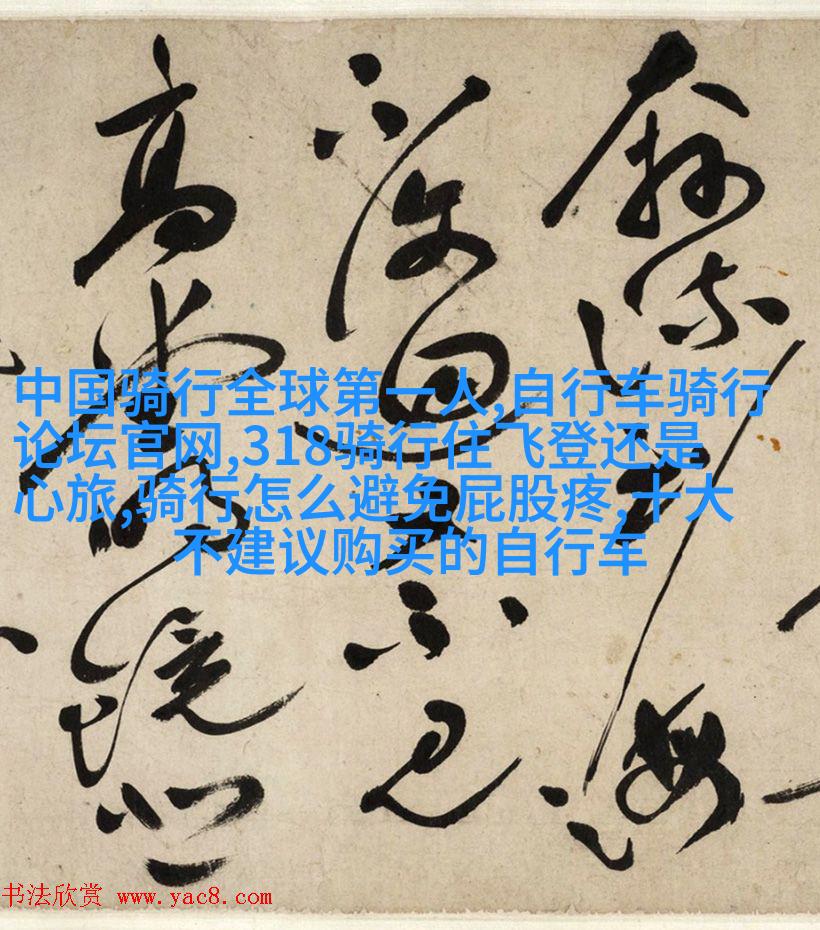 奔流到海
不復回不見
高堂明鏡悲
中国骑行全球第一人,自行车骑行
论坛官网,318骑行住飞登还是
心旅,骑行怎么避免屁股疼,十大
不建议购买的自行车
书法欣赏 www.yac8.com